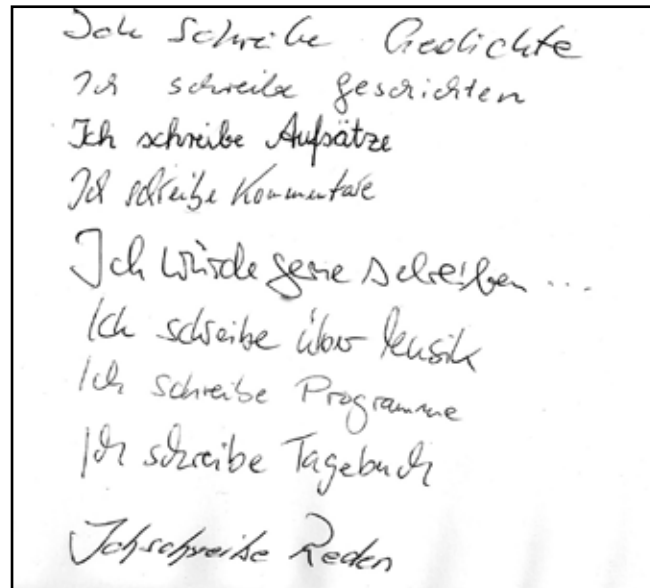 Ich schreibe Gedichte
Ich schreibe geschichten
Ich schreibe Aufsätze
Ich schreibe Kommentare
Ich würde gerne schreiben ...
Ich schreibe über Musik
Ich schreibe Programme
Ich schreibe Tagebuch
Ich schreibe Reden